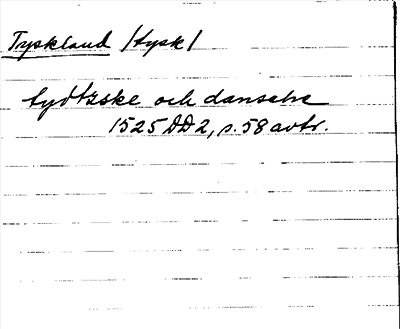 Tyskland /tysk/
tydtzske och dansche
1525 DD2, s. 58 avtr.